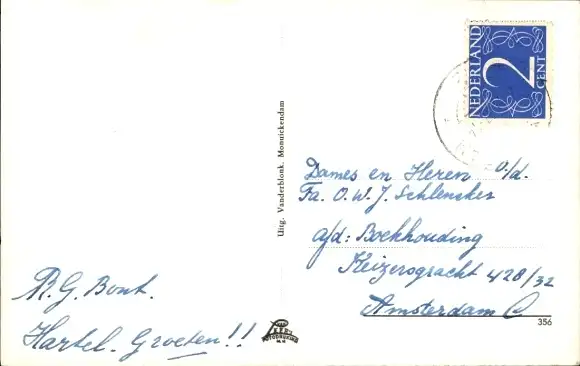 NEDERLAND
2
CENT
Uitg. Vanderblonk. Monnickendam
Dames en Heren o/d.
Fa. O. W. J. Schlencker
a/d: Boekhouding
Keizersgracht 428/32
Amsterdam C
R. G. Bont.
Hartel. Groeten!!
356